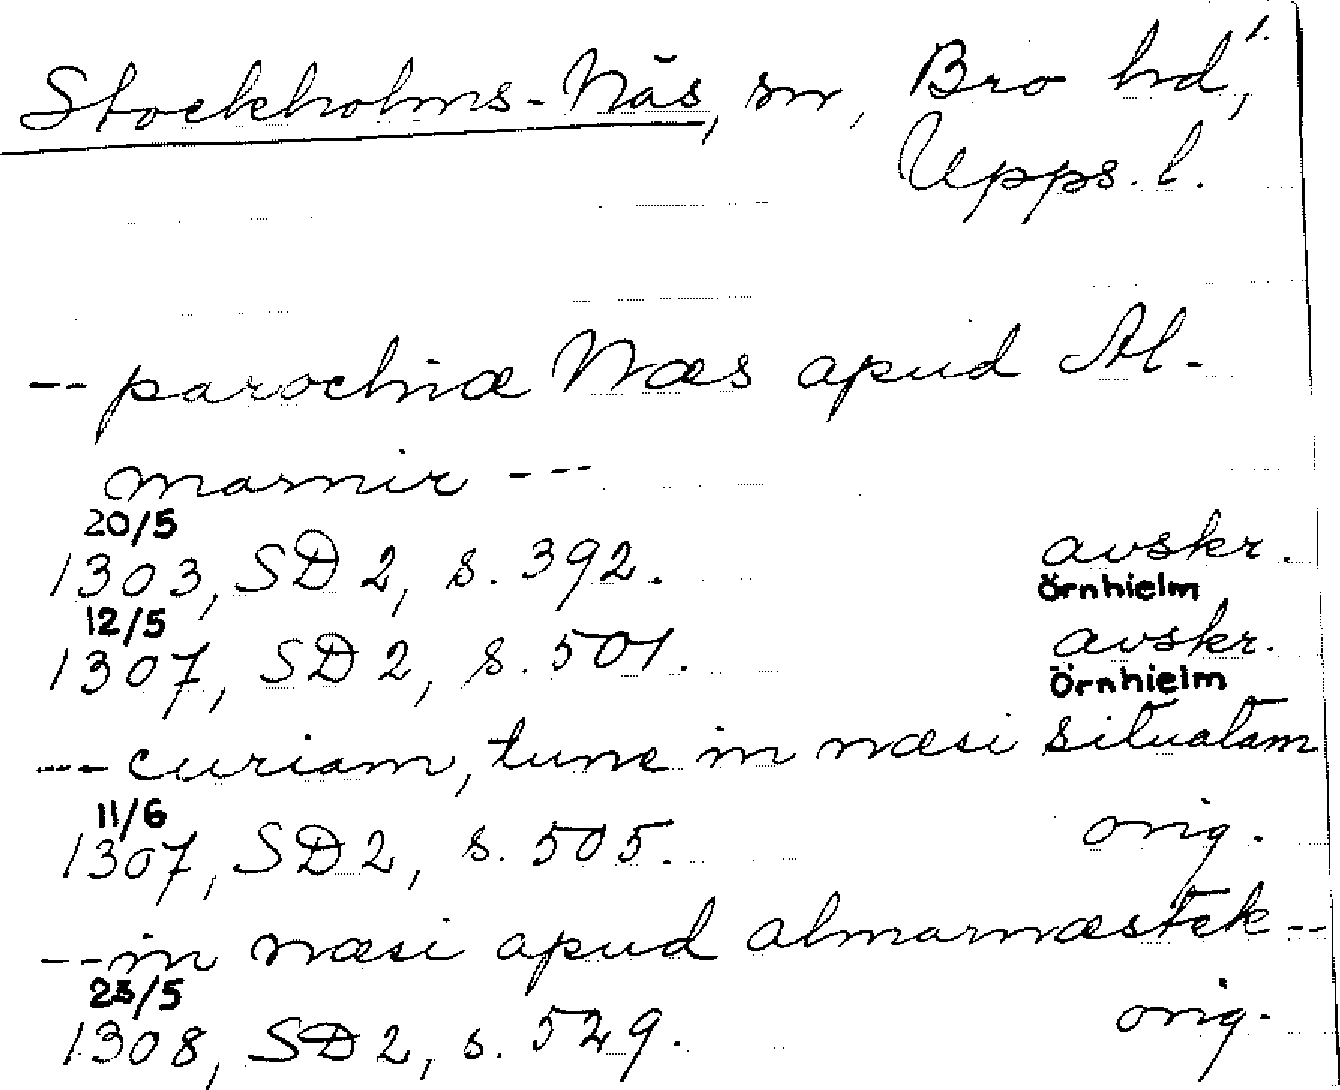 1.
Stockholms-Näs, sn, Bro hd,
Upps. l.
-- parochiæ Næs apud Al-
marnir ---
20/5
1303, SD 2, s. 392. avskr.
Örnhielm
12/5
1307, SD 2, s. 501. avskr.
Örnhielm
--- curiam, tunc in næsi situatam
11/6
1307, SD 2, s. 505. orig.
--in næsi apud almarnæstek--
23/5
1308, SD 2, s. 529. orig.